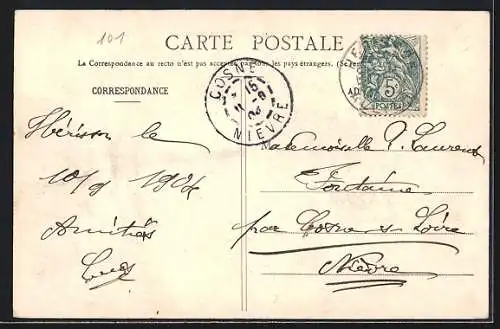 101
CARTE POSTALE
La Correspondance au recto n'est pas acceptée par tous les pays étrangers. (Se
CORRESPONDANCE
COSNE
15
11 -9
04
NIEVRE
5c
POSTES
Hérisson le
10/9 1904
Amitiés
Mademoiselle J. Laurent
Fontaine
par Cosne s Loire
Nièvre